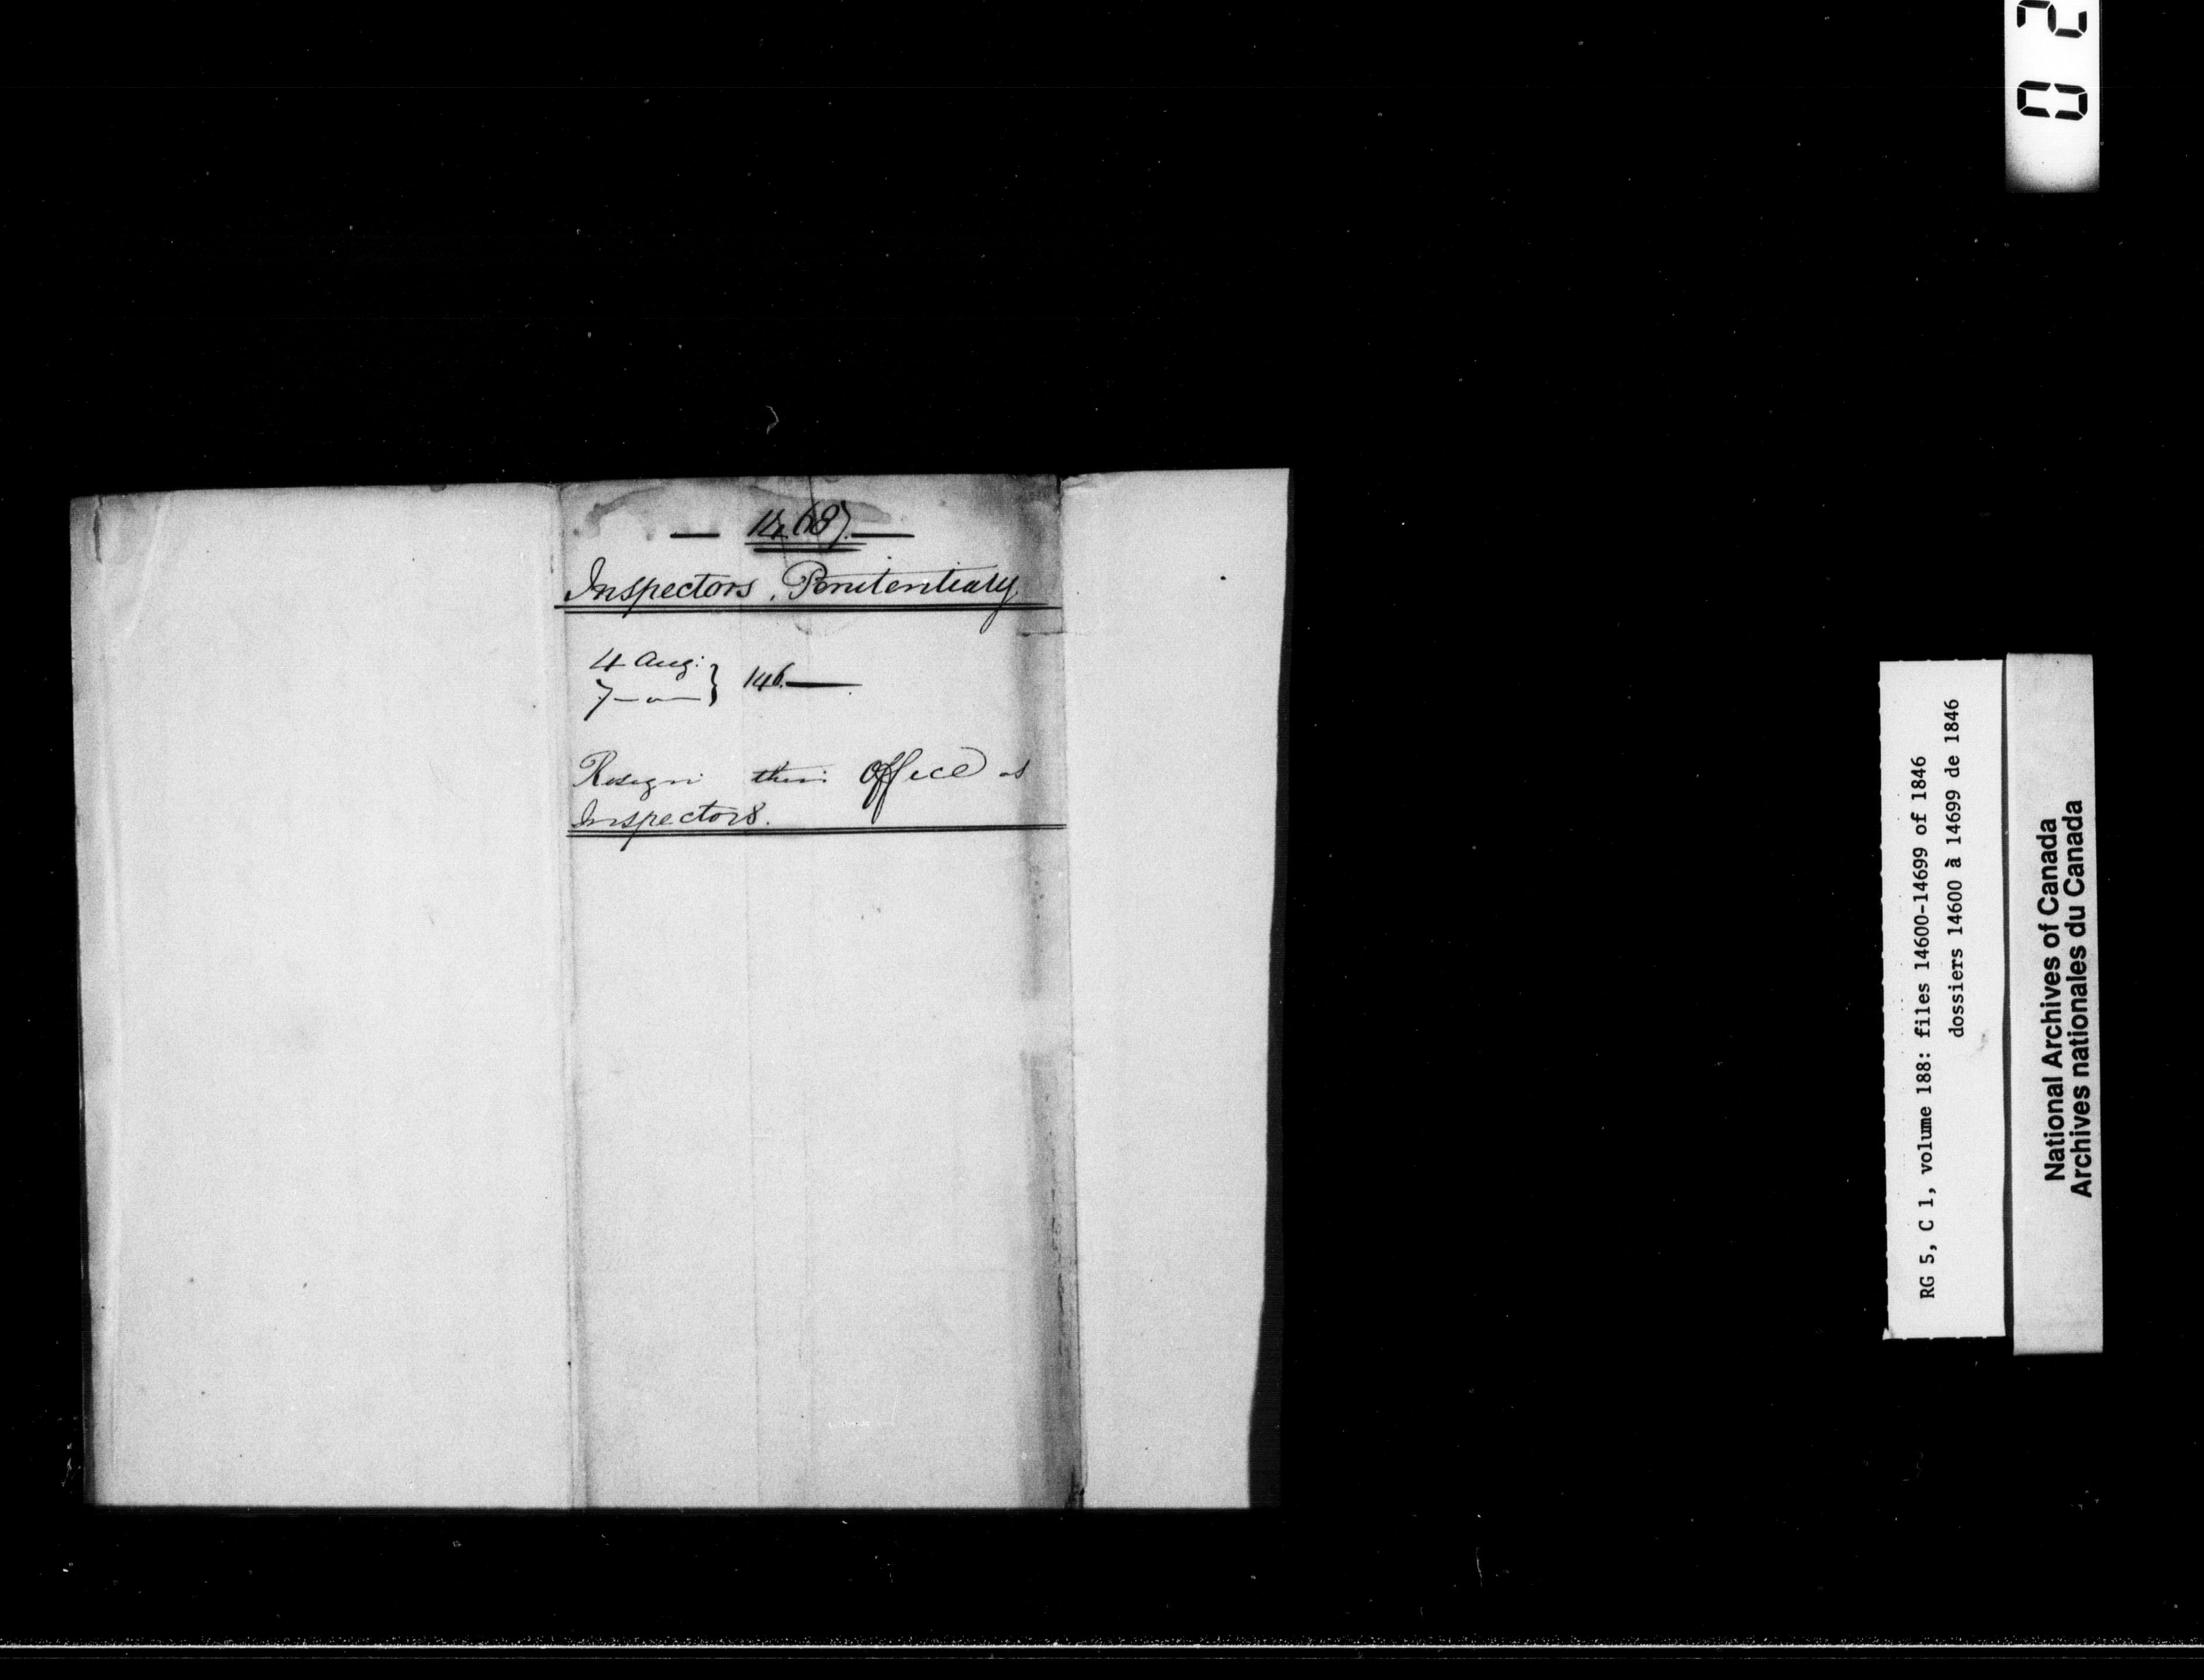 — 14,687. —
Inspectors, Penitentiary
4 Aug:
7 — " — } 1846. —
Resign their Office as
Inspectors.
RG 5, C 1, volume 188: files 14600-14699 of 1846
dossiers 14600 à 14699 de 1846
National Archives of Canada
Archives nationales du Canada
0 2